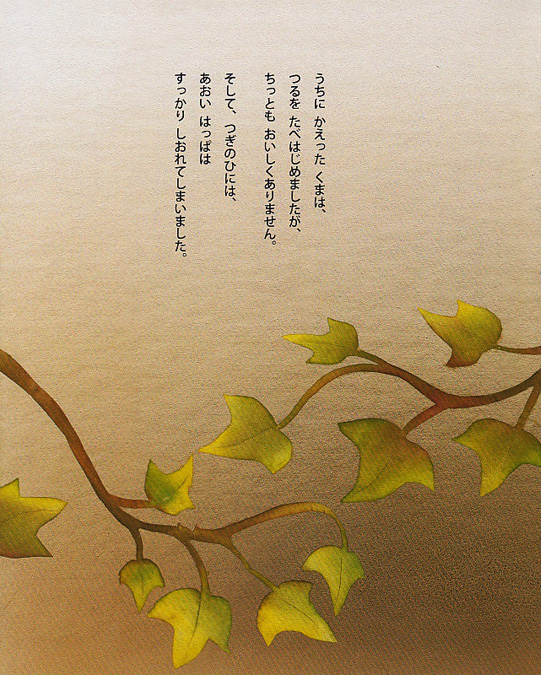 うちに かえった くまは、
つるを たべはじめましたが、
ちっとも おいしくありません。
そして、つぎのひには、
あおい はっぱは
すっかり しおれてしまいました。